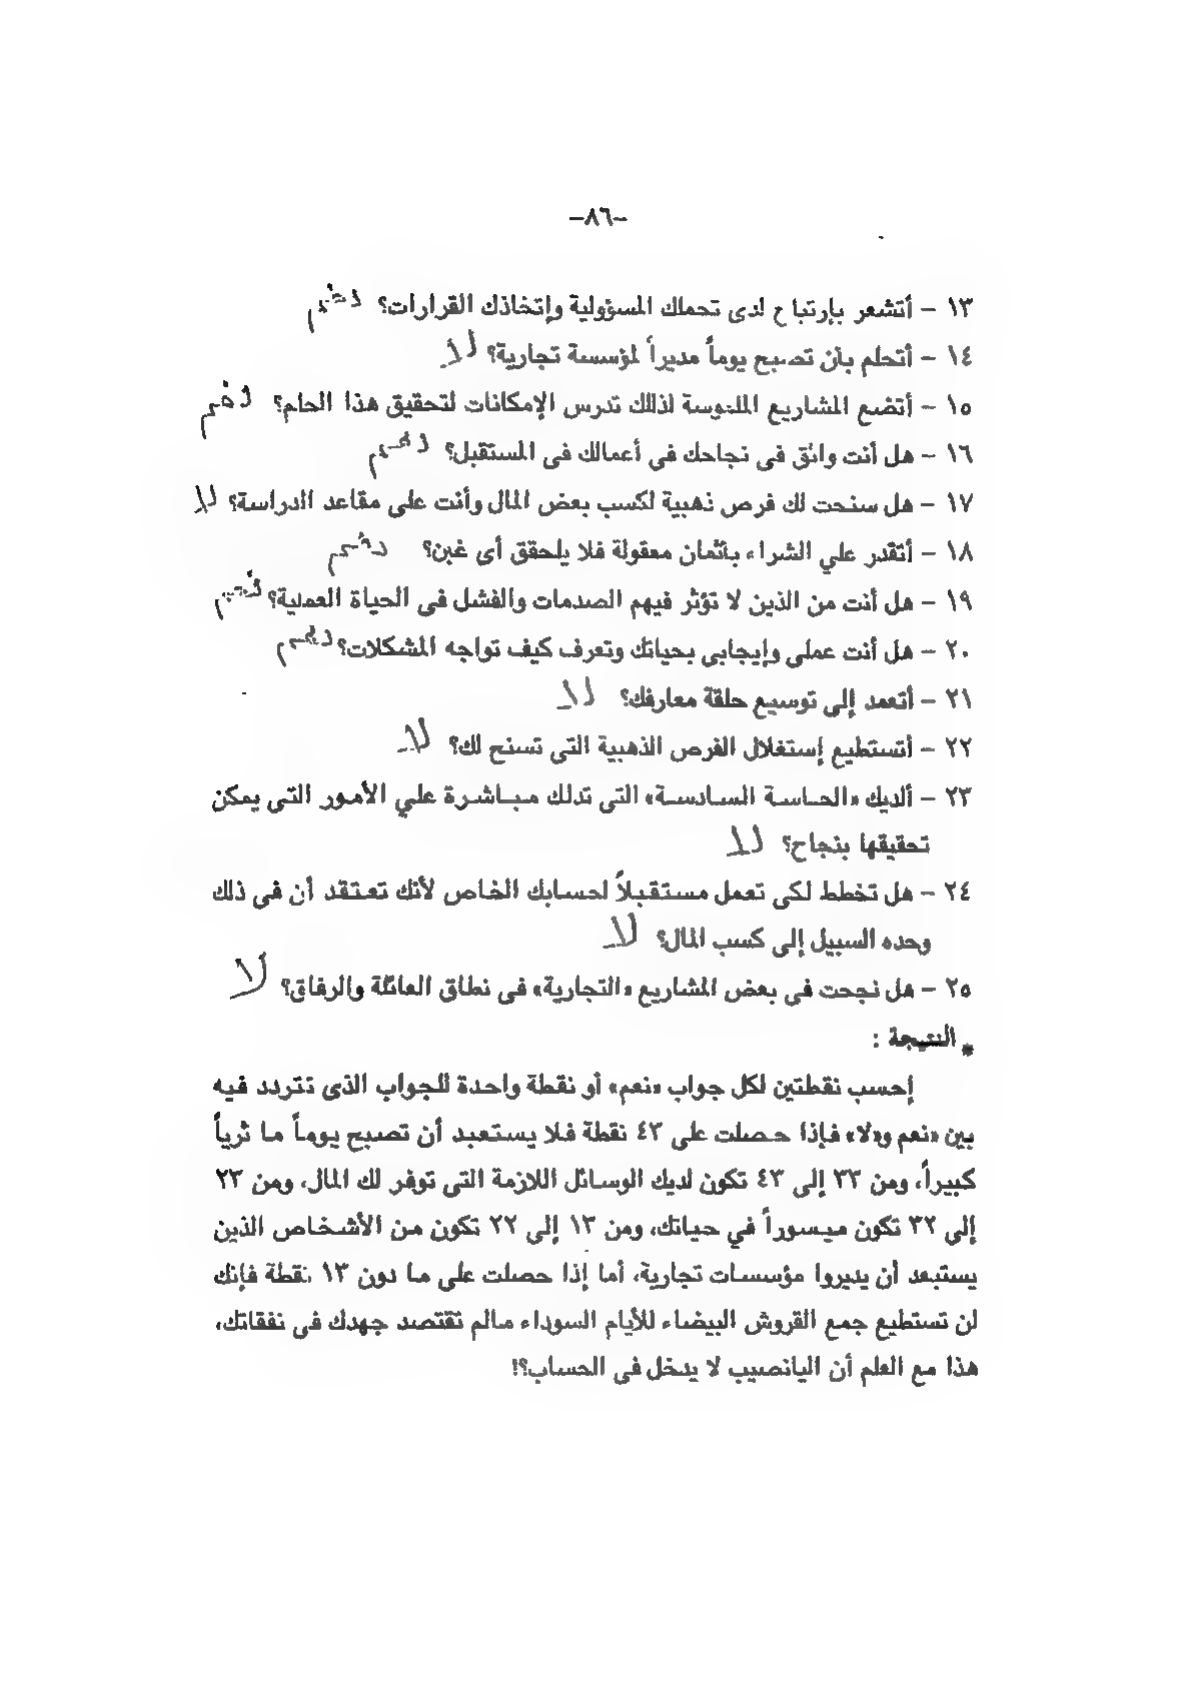 -٨٦-
١٣ - أتشعر بإرتباح لدى تحملك المسؤولية وإتخاذك القرارات؟ نعم
١٤ - أتحلم بأن تصبح يوماً مديراً لمؤسسة تجارية؟ لا
١٥ - أتضع المشاريع الملموسة لذلك تدرس الإمكانات لتحقيق هذا الحلم؟ نعم
١٦ - هل أنت واثق فى نجاحك في أعمالك فى المستقبل؟ نعم
١٧ - هل سنحت لك فرص ذهبية لكسب بعض المال وأنت على مقاعد الدراسة؟ لا
١٨ - أتقدر علي الشراء بأثمان معقولة فلا يلحقق أى غبن؟ نعم
١٩ - هل أنت من الذين لا تؤثر فيهم الصدمات والفشل فى الحياة العملية؟ نعم
٢٠ - هل أنت عملى وإيجابى بحياتك وتعرف كيف تواجه المشكلات؟ نعم
٢١ - أتعمد إلى توسيع حلقة معارفك؟ لا
٢٢ - أتستطيع إستغلال الفرص الذهبية التى تسنح لك؟ لا
٢٣ - ألديك «الحاسة السادسة» التى تدلك مباشرة علي الأمور التى يمكن
تحقيقها بنجاح؟ لا
٢٤ - هل تخطط لكى تعمل مستقبلاً لحسابك الخاص لأنك تعتقد أن فى ذلك
وحده السبيل إلى كسب المال؟ لا
٢٥ - هل نجحت في بعض المشاريع «التجارية» فى نطاق العائلة والرفاق؟ لا
* النتيجة :
إحسب نقطتين لكل جواب «نعم» أو نقطة واحدة للجواب الذى تتردد فيه
بين «نعم و«لا» فإذا حصلت على ٤٣ نقطة فلا يستعبد أن تصبح يوماً ما ثرياً
كبيراً، ومن ٣٣ إلى ٤٣ تكون لديك الوسائل اللازمة التى توفر لك المال، ومن ٢٣
إلي ٣٢ تكون ميسوراً في حياتك، ومن ١٣ إلى ٢٢ تكون من الأشخاص الذين
يستبعد أن يديروا مؤسسات تجارية، أما إذا حصلت على ما دون ١٣ نقطة فإنك
لن تستطيع جمع القروش البيضاء للأيام السوداء مالم تقتصد جهدك فى نفقاتك،
هذا مع العلم أن اليانصيب لا يدخل فى الحساب؟!